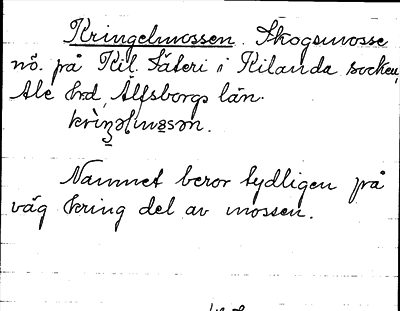 Kringelmossen. Skogsmosse
nö. på Kil. Säteri i Kilanda socken,
Ale hrd, Älfsborgs län.
Namnet beror tydligen på
väg kring del av mossen.